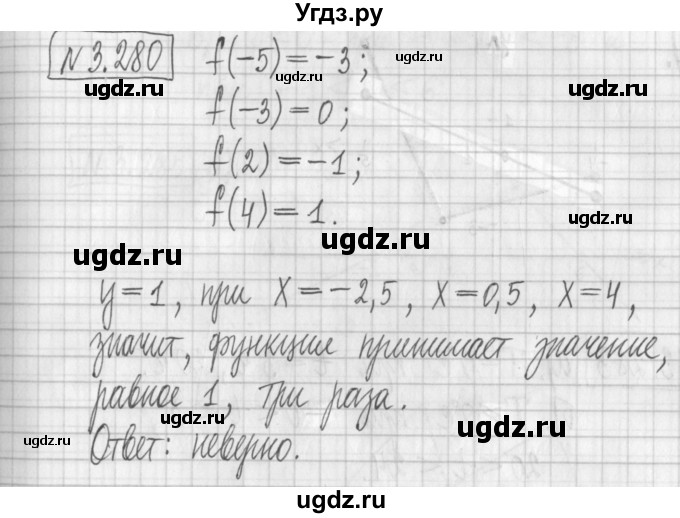 Угдз.ру
N 3.280 f(-5) = -3;
f(-3) = 0;
f(2) = -1;
f(4) = 1.
y = 1, при X = -2,5, X = 0,5, X = 4,
значит, функция принимает значение,
равное 1, три раза.
Ответ: неверно.
ugdz.ru
ugdz.ru
ugdz.ru
ugdz.ru
ugdz.ru
ugdz.ru
ugdz.ru
ugdz.ru
ugdz.ru
ugdz.ru
ugdz.ru
ugdz.ru
ugdz.ru